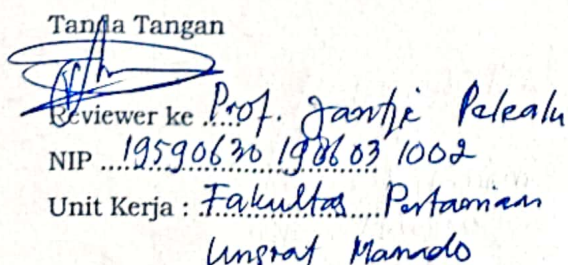 Tanda Tangan
Reviewer ke ..... Prof. Jantje Pelealu
NIP ...19590630 198603 1002
Unit Kerja : Fakultas Pertanian
Unsrat Manado